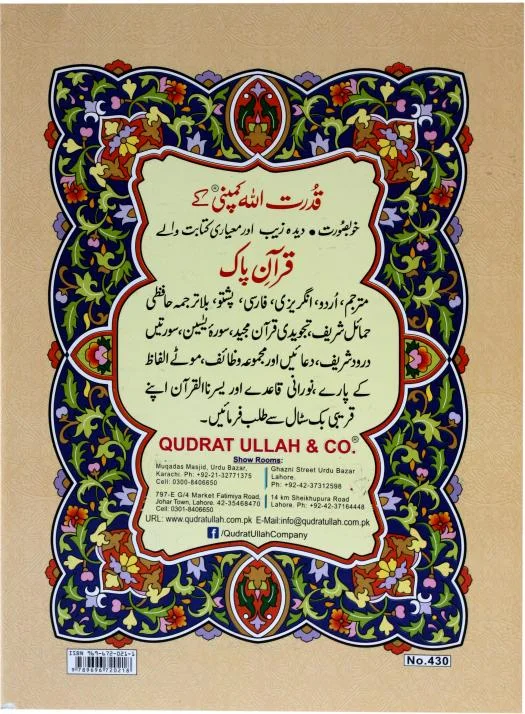 قدرت اللہ کمپنی® کے
خوبصورت • دیدہ زیب اور معیاری کتابت والے
قرآن پاک
مترجم، اُردو، انگریزی، فارسی، پشتو، بلا ترجمہ حافظی
حمائل شریف، تجویدی قرآن مجید، سورۂ یٰسین، سورتیں
درود شریف، دعائیں اور مجموعہ وظائف، موٹے الفاظ
کے پارے، نورانی قاعدے اور یسرنا القرآن اپنے
قریبی بک سٹال سے طلب فرمائیں۔
QUDRAT ULLAH & CO.®
Show Rooms:
Muqadas Masjid, Urdu Bazar,
Karachi. Ph: +92-21-32771375
Cell: 0300-8406650
Ghazni Street Urdu Bazar
Lahore.
Ph: +92-42-37312598
797-E G/4 Market Fatimiya Road,
Johar Town, Lahore. 42-35468470
Cell: 0301-8406650
14 km Sheikhupura Road
Lahore. Ph: +92-42-37164448
URL: www.qudratullah.com.pk E-Mail:info@qudratullah.com.pk
f /QudratUllahCompany
ISBN 969-672-021-1
9 789696 720218
No.430